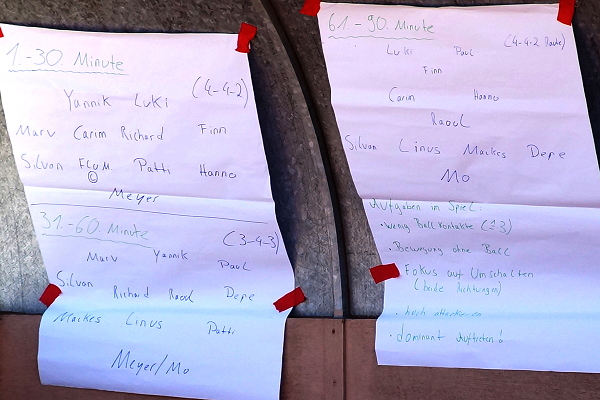 1.-30. Minute
(4-4-2)
Yannik Luki
Marv Carim Richard Finn
Silvan Flo M. Patti Hanno
©
Meyer
31.-60. Minute
(3-4-3)
Marv Yannik Paul
Silvan Richard Raoul Depe
Maikes Linus Patti
Meyer/Mo
61.-90. Minute
(4-4-2 Raute)
Luki Paul
Finn
Carim Hanno
Raoul
Silvan Linus Maikes Depe
Mo
Aufgaben im Spiel:
• wenig Ballkontakte (2-3)
• Bewegung ohne Ball
• Fokus auf Umschalten
(beide Richtungen)
• hoch
• dominant auftreten!